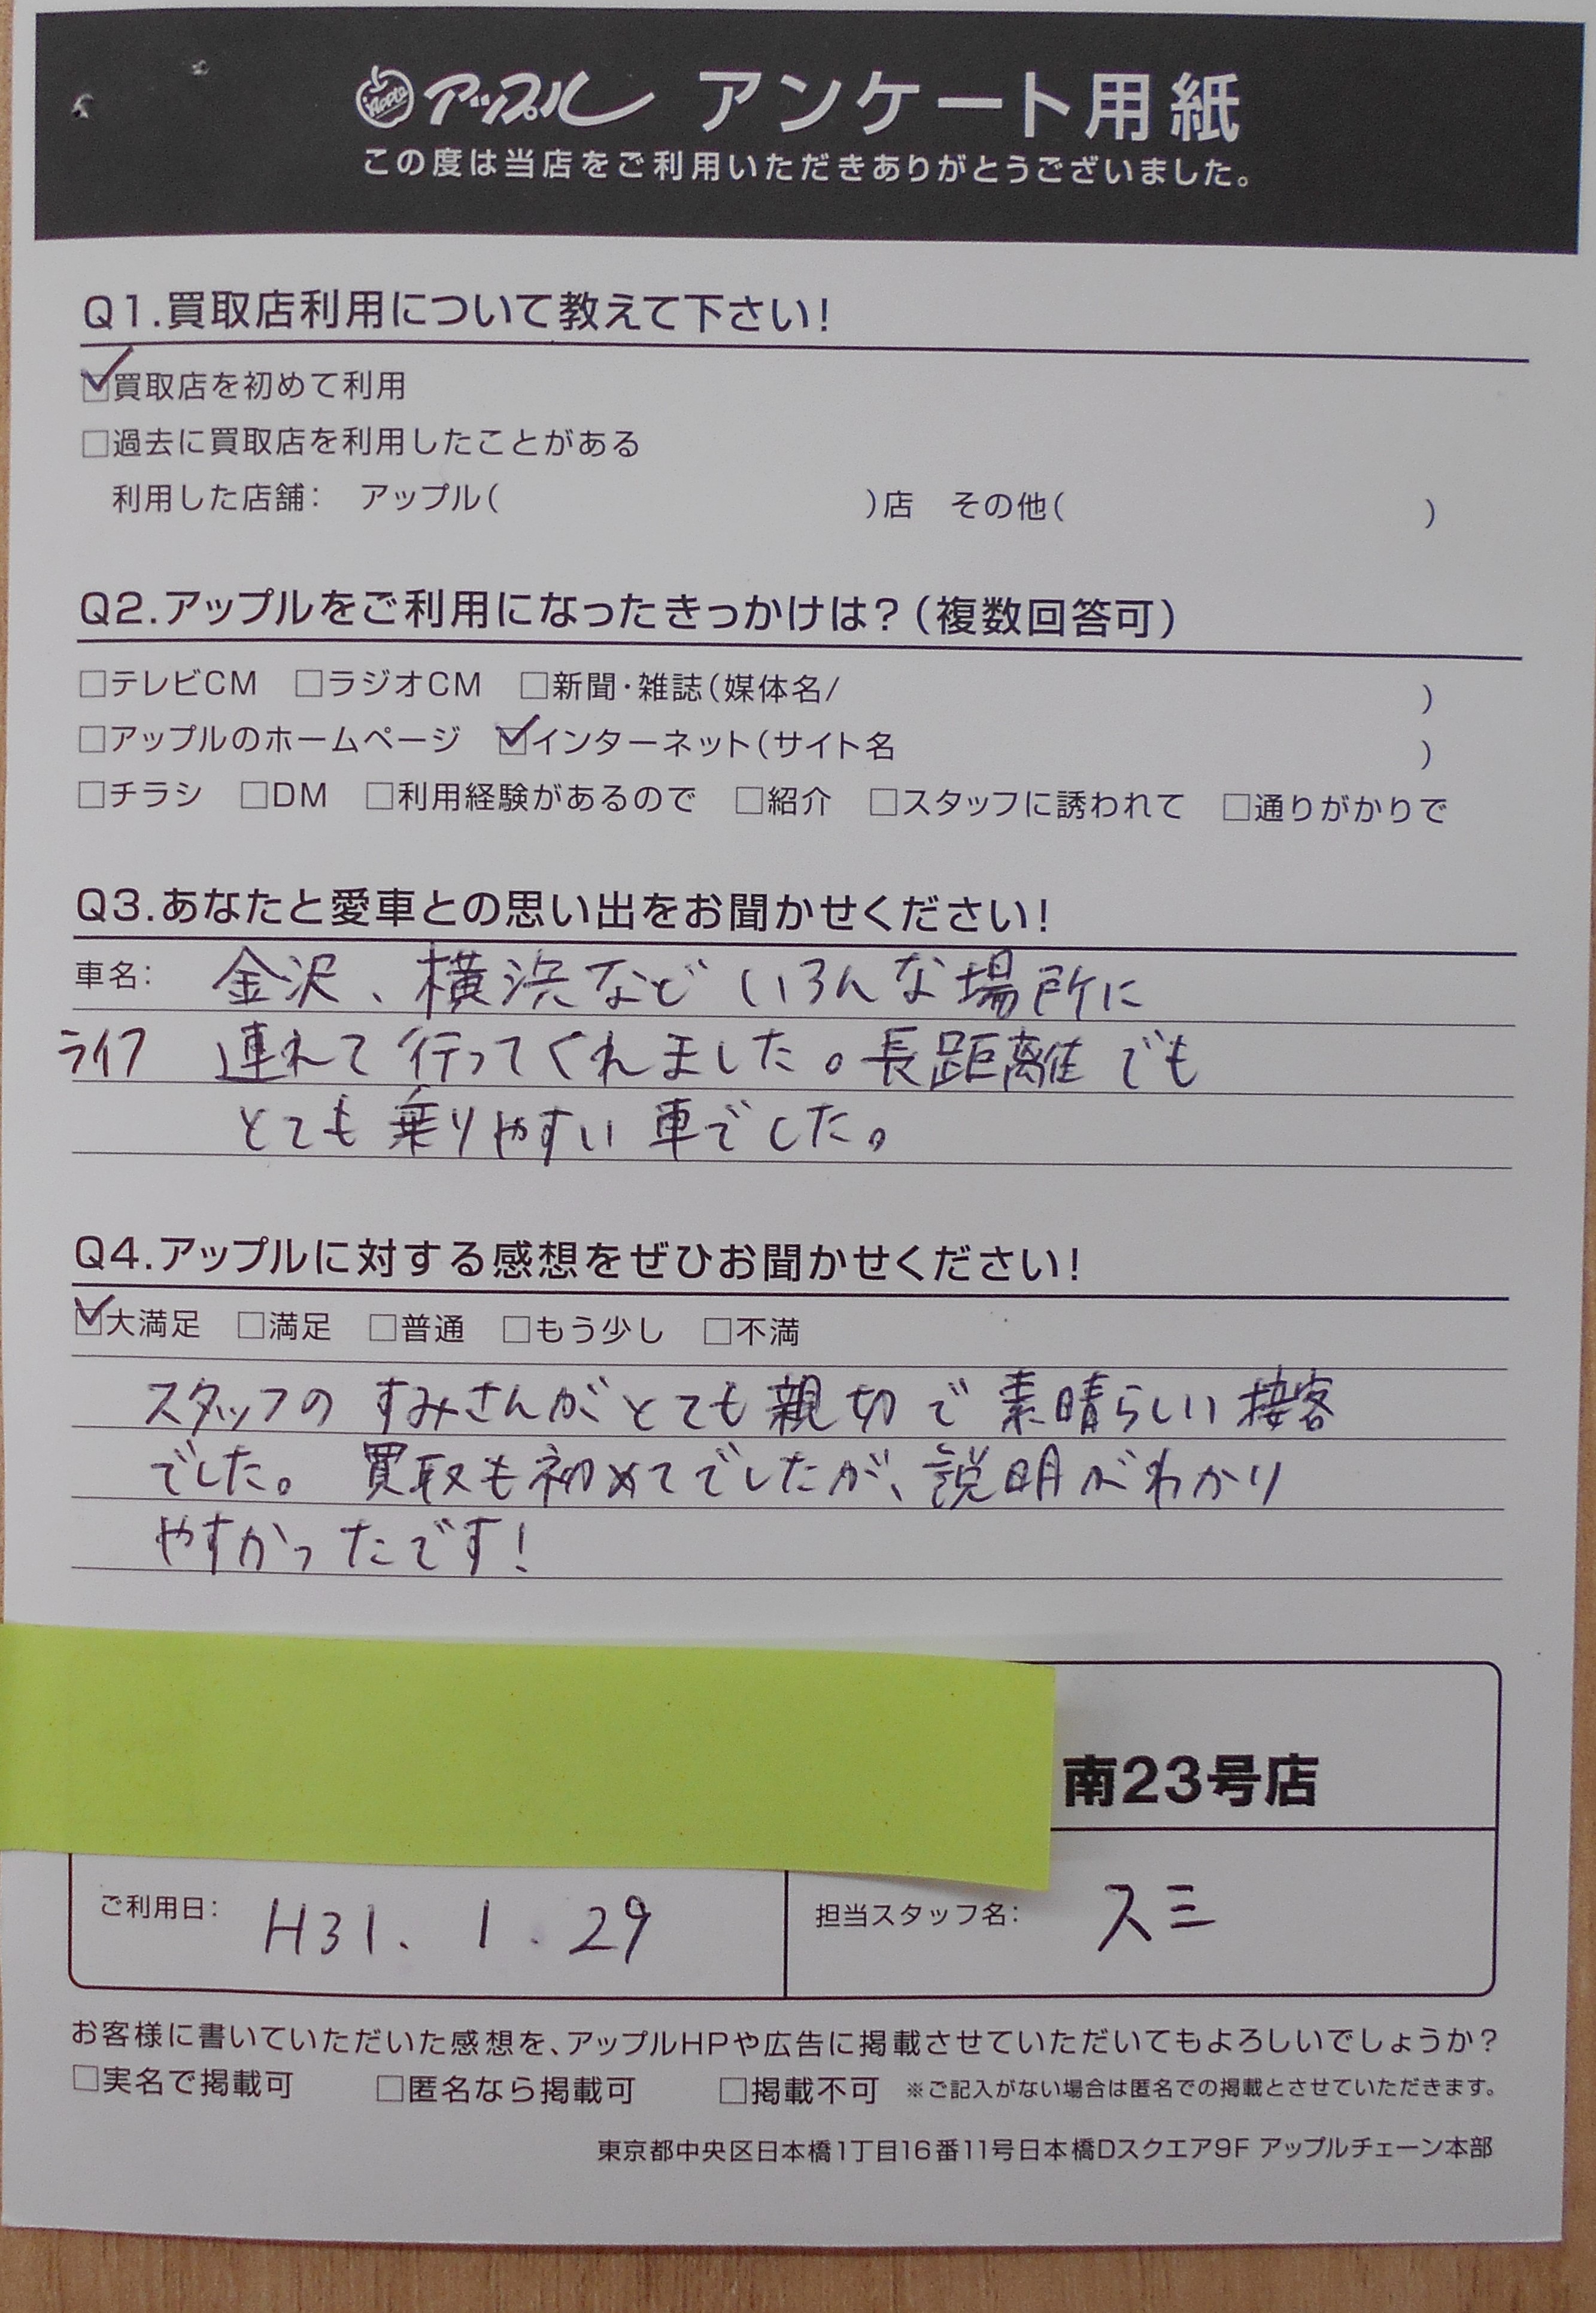 Apple アップル アンケート用紙
この度は当店をご利用いただきありがとうございました。
Q1.買取店利用について教えて下さい!
☑買取店を初めて利用
□過去に買取店を利用したことがある
利用した店舗: アップル( )店 その他( )
Q2.アップルをご利用になったきっかけは?(複数回答可)
□テレビCM □ラジオCM □新聞・雑誌(媒体名/ )
□アップルのホームページ ☑インターネット(サイト名 )
□チラシ □DM □利用経験があるので □紹介 □スタッフに誘われて □通りがかりで
Q3.あなたと愛車との思い出をお聞かせください!
車名: 金沢、横浜など いろんな場所に
ライフ 連れて行ってくれました。長距離でも
とても乗りやすい車でした。
Q4.アップルに対する感想をぜひお聞かせください!
☑大満足 □満足 □普通 □もう少し □不満
スタッフの すみさんがとても親切で素晴らしい接客
でした。買取も初めてでしたが、説明がわかり
やすかったです!
南23号店
ご利用日: H31. 1. 29 担当スタッフ名: スミ
お客様に書いていただいた感想を、アップルHPや広告に掲載させていただいてもよろしいでしょうか?
□実名で掲載可 □匿名なら掲載可 □掲載不可 ※ご記入がない場合は匿名での掲載とさせていただきます。
東京都中央区日本橋1丁目16番11号日本橋Dスクエア9F アップルチェーン本部